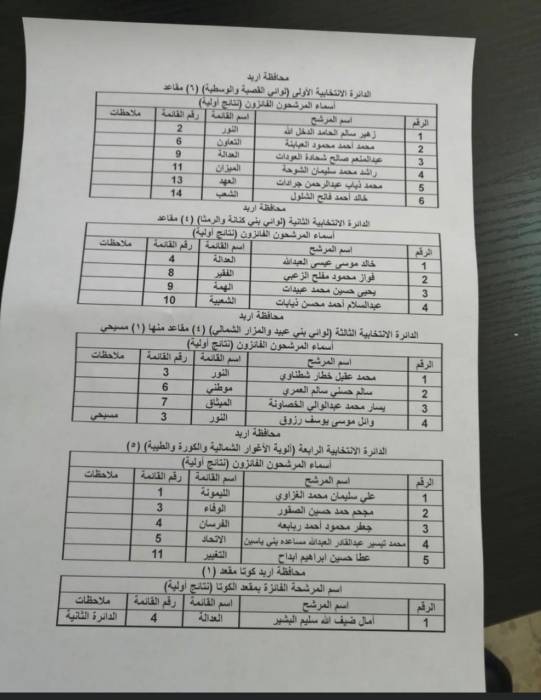 محافظة اربد
الدائرة الانتخابية الأولى (لوائي القصبة والوسطية) (٦) مقاعد
أسماء المرشحون الفائزون (نتائج أولية)
الرقم اسم المرشح اسم القائمة رقم القائمة ملاحظات
1 زهير سالم الحامد الدخل الله النور 2
2 محمد أحمد محمود العبابنة التعاون 6
3 عبدالمنعم صالح شحادة العودات العدالة 9
4 راشد محمد سليمان الشوحة الميزان 11
5 محمد ذياب عبدالرحمن جرادات العهد 13
6 خالد أحمد فالح الشلول الشعب 14
محافظة اربد
الدائرة الانتخابية الثانية (لوائي بني كنانة والرمثا) (٤) مقاعد
أسماء المرشحون الفائزون (نتائج أولية)
الرقم اسم المرشح اسم القائمة رقم القائمة ملاحظات
1 خالد موسى عيسى العبدالله العدالة 4
2 فواز محمود مفلح الزعبي الفقير 8
3 يحيى حسين محمد عبيدات الهمة 9
4 عبدالسلام أحمد محسن ذيابات الشعبية 10
محافظة اربد
الدائرة الانتخابية الثالثة (لوائي بني عبيد والمزار الشمالي) (٤) مقاعد منها (١) مسيحي
أسماء المرشحون الفائزون (نتائج أولية)
الرقم اسم المرشح اسم القائمة رقم القائمة ملاحظات
1 محمد عقيل خطار شطناوي النور 3
2 سالم حسني سالم العمري موطني 6
3 يسار محمد عبدالوالي الخصاونة الميثاق 7
4 وائل موسى يوسف رزوق النور 3 مسيحي
محافظة اربد
الدائرة الانتخابية الرابعة (ألوية الأغوار الشمالية والكورة والطيبة) (٥)
أسماء المرشحون الفائزون (نتائج أولية)
الرقم اسم المرشح اسم القائمة رقم القائمة ملاحظات
1 علي سليمان محمد الغزاوي الليمونة 1
2 مجحم حمد حسين الصقور الوفاء 3
3 جعفر محمود أحمد ربابعه الفرسان 4
4 محمد تيسير عبدالقادر العبدالله مساعده بني ياسين الاتحاد 5
5 عطا حسين ابراهيم ابداح التغيير 11
محافظة اربد كوتا مقعد (١)
اسم المرشحة الفائزة بمقعد الكوتا (نتائج أولية)
الرقم اسم المرشح اسم القائمة رقم القائمة ملاحظات
1 آمال ضيف الله سليم البشير العدالة 4 الدائرة الثانية